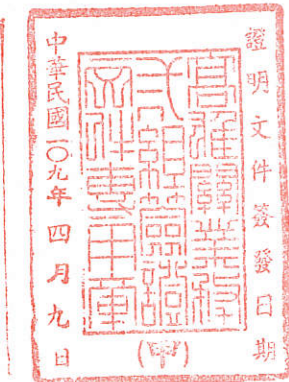 證明文件簽發日期
高雄關業務
組簽證
文件專用章
中華民國一〇九年四月九日